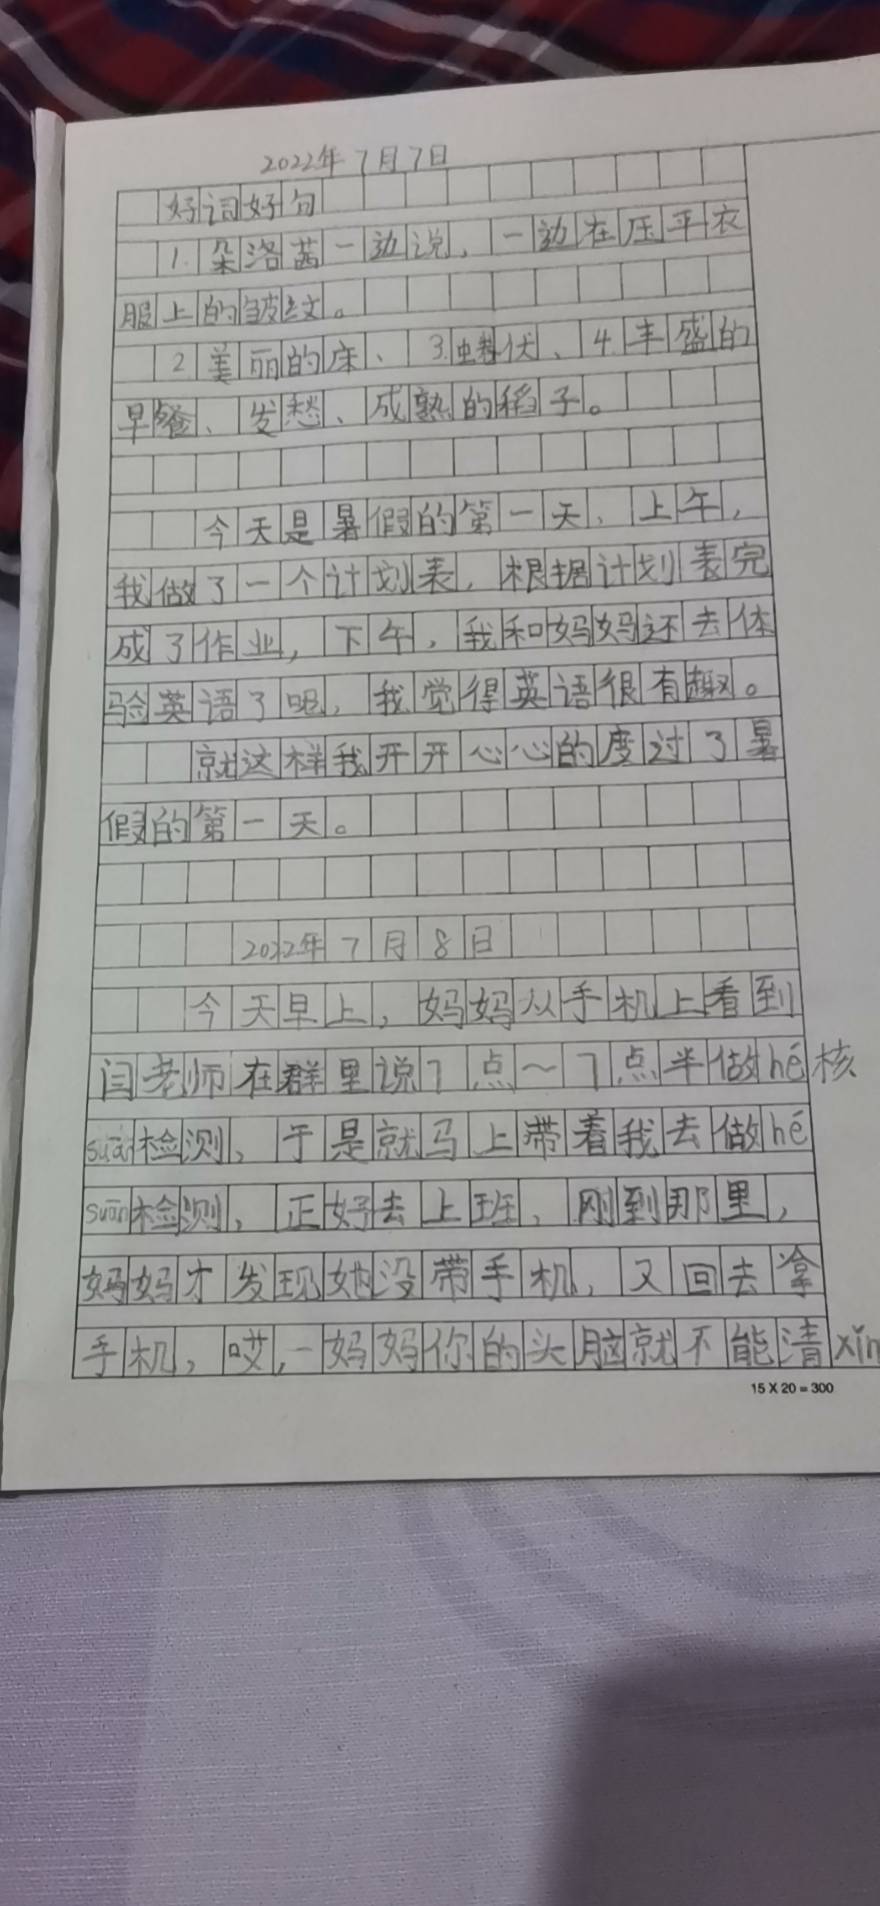 2022年7月7日
好词好句
1.朵洛茜一边说,一边在压平衣
服上的皱纹。
2.美丽的床、3.蜷伏、4.丰盛的
早餐、发愁、成熟的稻子。
今天是暑假的第一天,上午,
我做了一个计划表,根据计划表完
成了作业,下午,我和妈妈还去体
验英语了呢,我觉得英语很有趣。
就这样我开开心心的度过了暑
假的第一天。
2022年7月8日
今天早上,妈妈从手机上看到
闫老师在群里说7点~7点半做hé核
suān检测,于是就马上带着我去做hé
suān检测,正好去上班,刚到那里,
妈妈才发现她没带手机,又回去拿
手机,哎,妈妈你的头脑就不能清xǐn
15×20=300